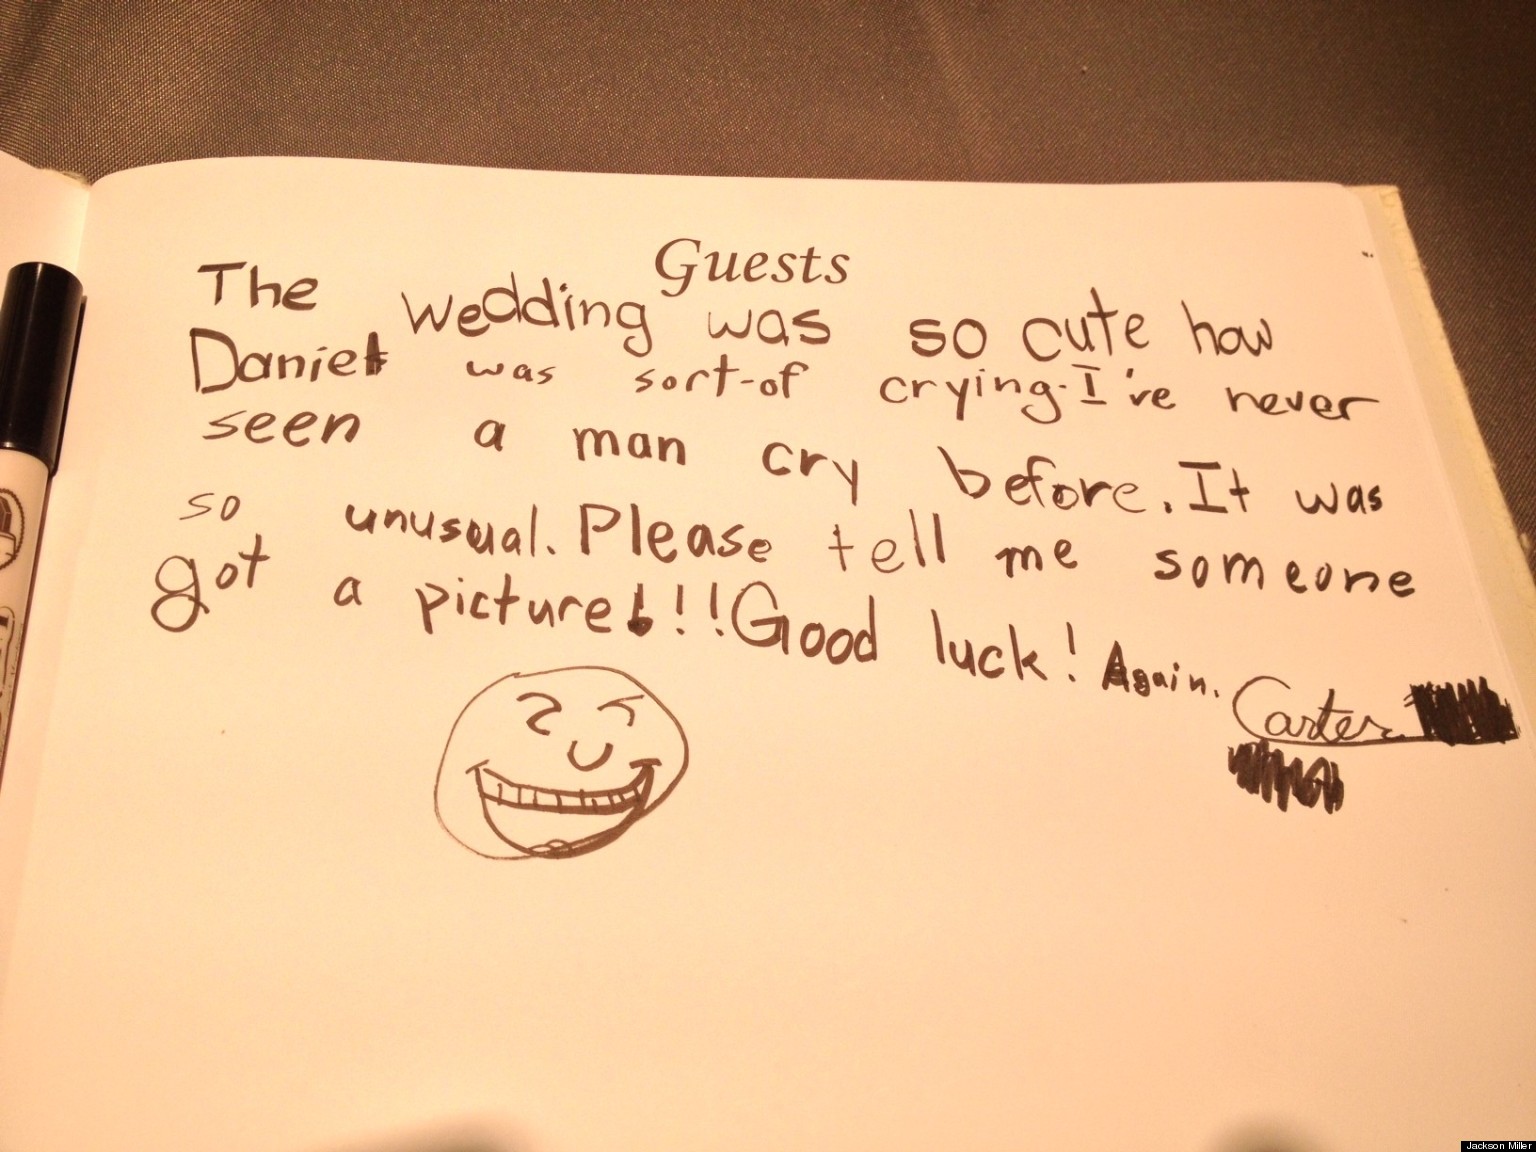 Guests
The wedding was so cute how
Daniel was sort-of crying. I've never
seen a man cry before. It was
so unusual. Please tell me someone
got a picture!!! Good luck! Again.
Carter
Jackson Miller